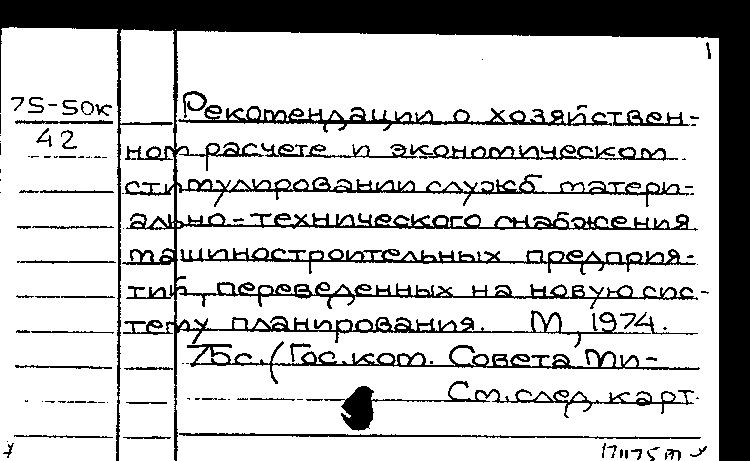 1
75-50к
42
Рекомендации о хозяйствен-
ном расчете и экономическом
стимулировании служб матери-
ально-технического снабжения
машиностроительных предприя-
тий, переведенных на новую сис-
тему планирования. М, 1974.
75с. (Гос. ком. Совета Ми-
См. след. карт.